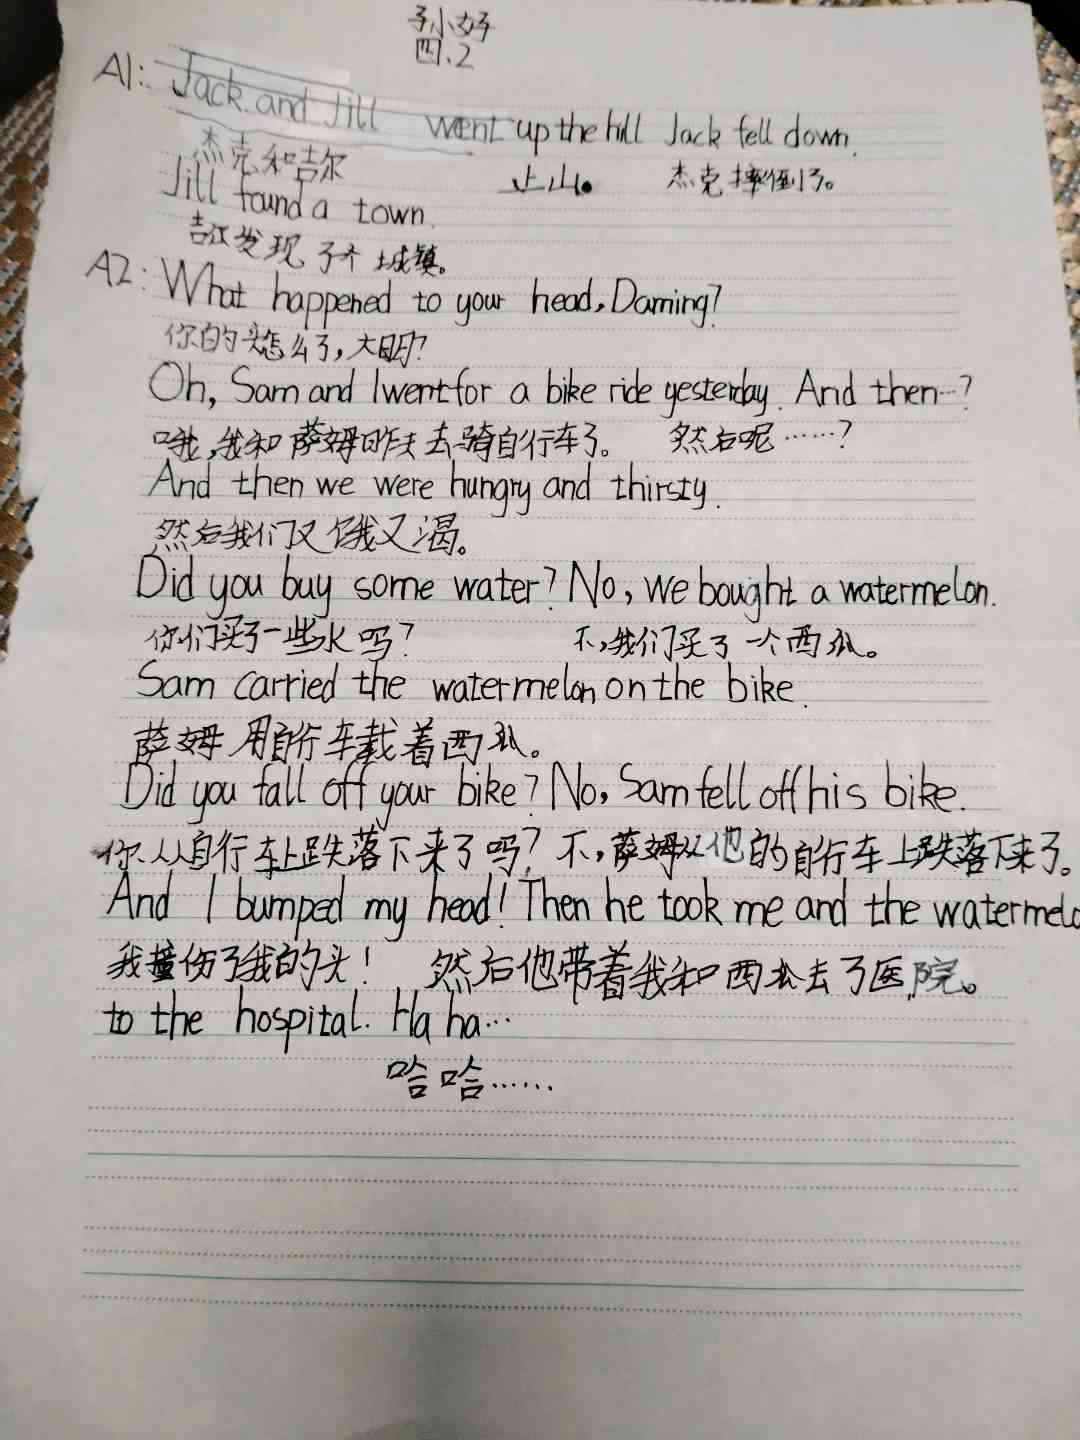 孙小好
四.2
A1: Jack and Jill went up the hill Jack fell down.
杰克和吉尔 上山。 杰克摔倒了。
Jill found a town.
吉尔发现了个城镇。
A2: What happened to your head, Daming?
你的头怎么了,大明?
Oh, Sam and I went for a bike ride yesterday. And then…?
哦,我和萨姆昨天去骑自行车了。 然后呢……?
And then we were hungry and thirsty.
然后我们又饿又渴。
Did you buy some water? No, we bought a watermelon.
你们买了一些水吗? 不,我们买了一个西瓜。
Sam carried the watermelon on the bike.
萨姆用自行车载着西瓜。
Did you fall off your bike? No, Sam fell off his bike.
你从自行车上跌落下来了吗? 不,萨姆从他的自行车上跌落下来了。
And I bumped my head! Then he took me and the watermelo
我撞伤了我的头! 然后他带着我和西瓜去了医院。
to the hospital. Ha ha…
哈哈……